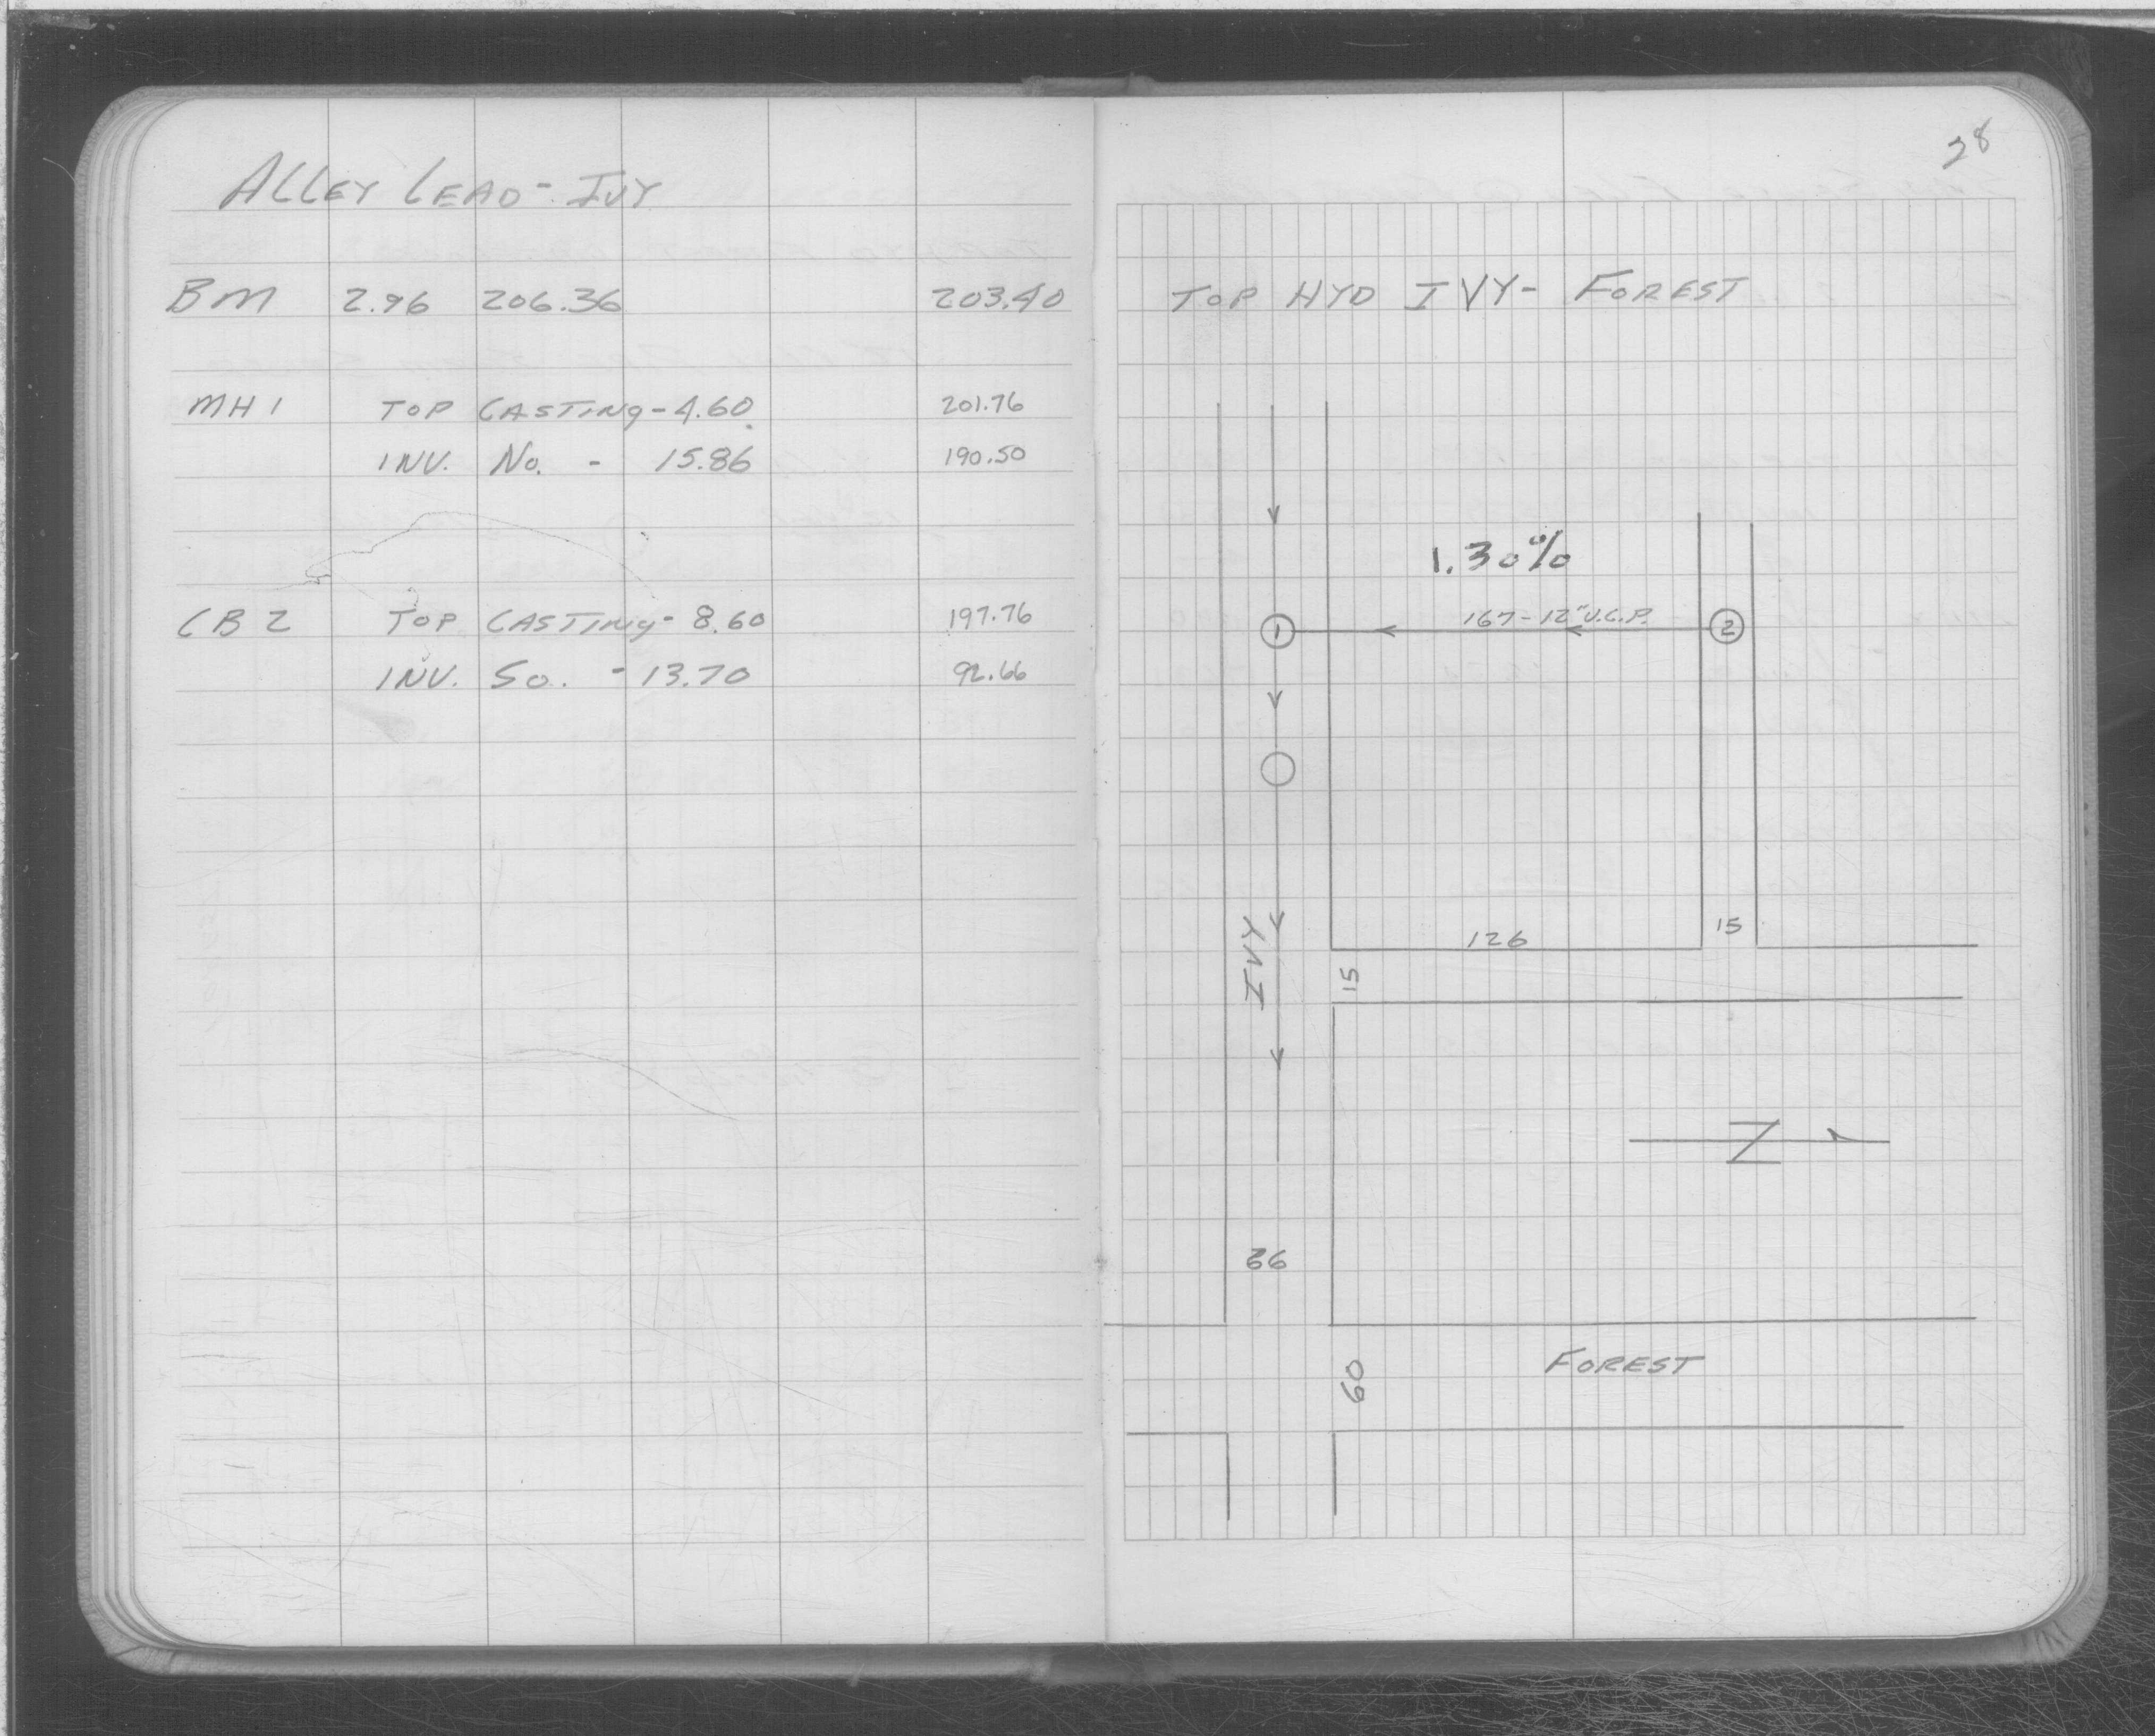 ALLEY LEAD - IVY
BM 2.96 206.36 203.40
MH 1 TOP CASTING - 4.60 201.76
INV. No. - 15.86 190.50
CB 2 TOP CASTING - 8.60 197.76
INV. So. - 13.70 92.66
28
TOP HYD IVY - FOREST
1.30%
167 - 12" V.C.P.
1
2
126
15
15
IVY
N
66
FOREST
60